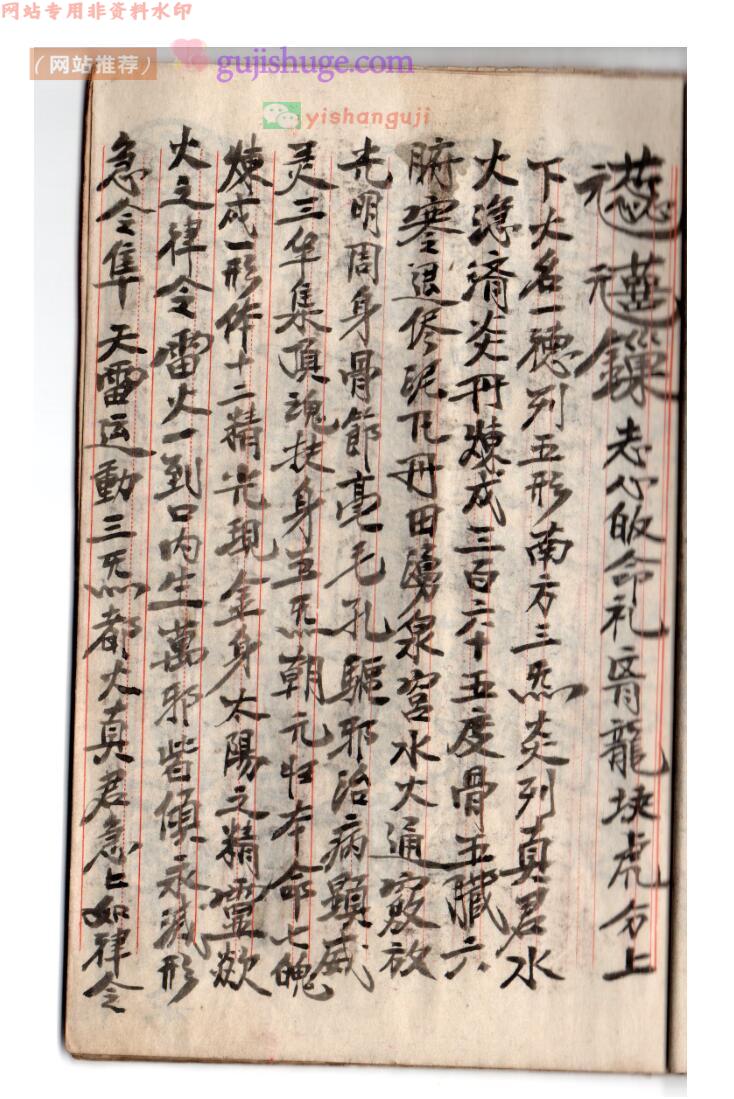 网站专用非资料水印
(网站推荐)
gujishuge.com
yishanguji
志心皈命礼青龍扶虎分上
下大名一德列五形南方三炁炎列真君水
火急濟炎丹煉成三百六十五度骨五臟六
腑寒退倐泥丸丹田湧泉宮水火通竅放
光明周身骨節毫毛孔驅邪治病顕威
灵三华集頂魂扶身五炁朝元归本命七魄
煉成一形体十二精光現金身太陽之精靈欻
火之律令雷火一到口内生萬邪皆傾永滅形
急令隼天雷运動三炁都火真君急上如律令